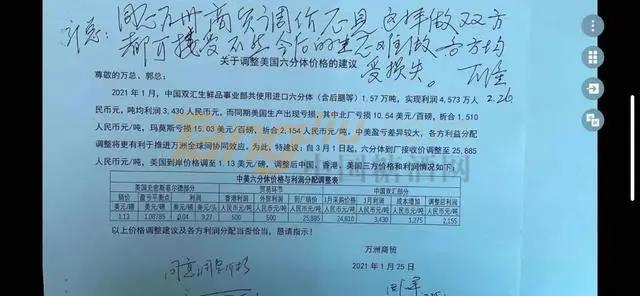 同意万洲商贸调价意见 这样做双方
都可接受 不然今后的生意难做 方方均
受损失。
2.26
关于调整美国六分体价格的建议
尊敬的万总、郭总:
2021 年 1 月,中国双汇生鲜品事业部共使用进口六分体(含后腿等)1.57 万吨,实现利润 4,573 万人
民币元,吨均利润 3,430 人民币元,而同期美国生产出现亏损,其中北厂亏损 10.54 美元/百磅,折合 1,510
人民币元/吨,玛莫斯亏损 15.03 美元/百磅,折合 2,154 人民币元/吨,中美盈亏差异较大,各方利益分
配调整将更有利于推进万洲全球间协同效应。为此,特建议:自 3 月 1 日起,六分体到厂接收价调整至 25,885
人民币元/吨,美国到岸价格调至 1.13 美元/磅,调整后中国、香港、美国三方价格和利润情况如下。
中美六分体价格与利润分配调整表
美国史密斯菲尔德部分 贸易环节 中国双汇部分
销价 盈亏平衡点 利润 香港利润 外贸利润 到厂销价 1月采购价格 1月利润 成本增加 调整后利润
美元/磅 美元/磅 美元/磅 美元/头 人民币元/吨 人民币元/吨 人民币元/吨 人民币元/吨 人民币元/吨 人民币元/吨 人民币元/吨
1.13 1.08785 0.04 9.27 500 500 25,885 24,610 3,430 1,275 2,155
以上价格调整建议及各方利润分配当否恰当,恳请指示!
万洲商贸
2021 年 1 月 25 日